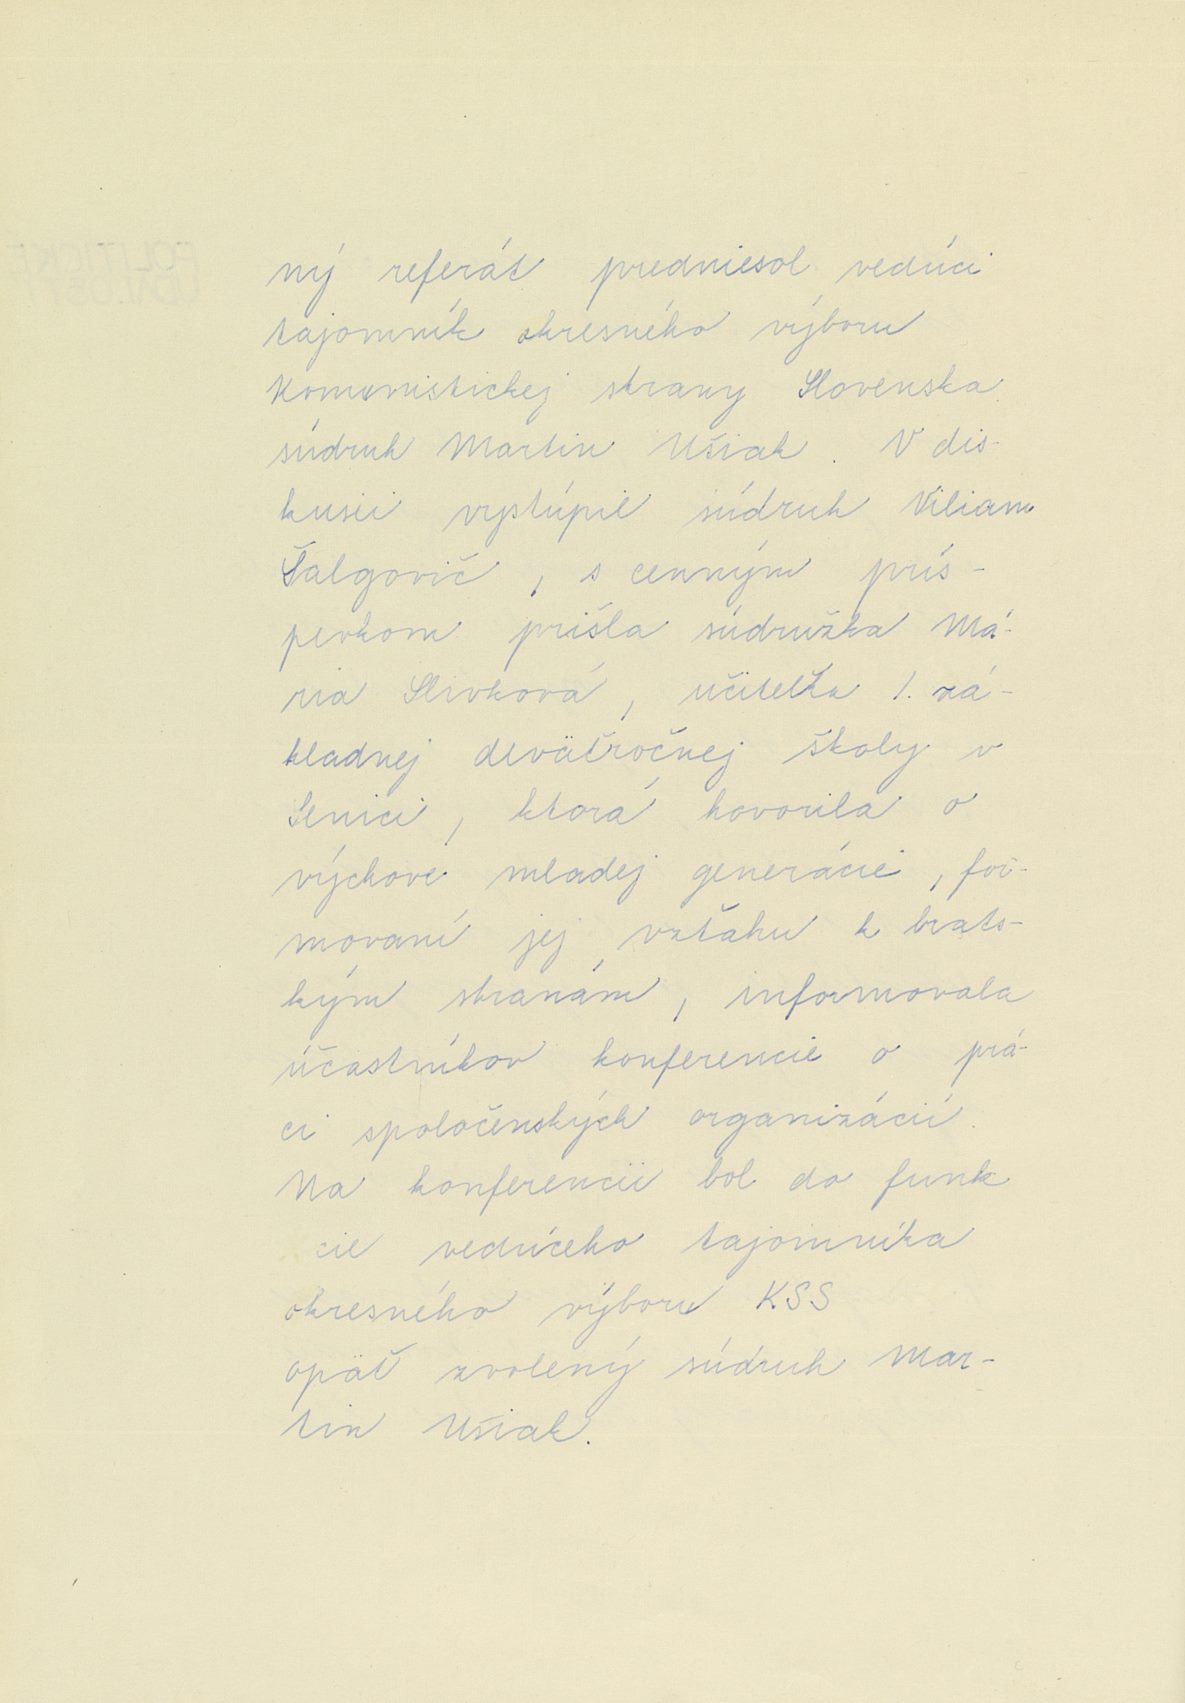 ný referát predniesol vedúci
tajomník okresného výboru
Komunistickej strany Slovenska
súdruh Martin Ušiak. V dis-
kusii vystúpil súdruh Viliam
Šalgovič, s cenným prís-
pevkom prišla súdružka Má-
ria Slivková, učiteľka 1. zá-
kladnej deväťročnej školy v
Senici, ktorá hovorila o
výchove mladej generácie, for-
movaní jej vzťahu k brats-
kým stranám, informovala
účastníkov konferencie o prá-
ci spoločenských organizácií.
Na konferencii bol do funk
cie vedúceho tajomníka
okresného výboru KSS
opäť zvolený súdruh Mar-
tin Ušiak.